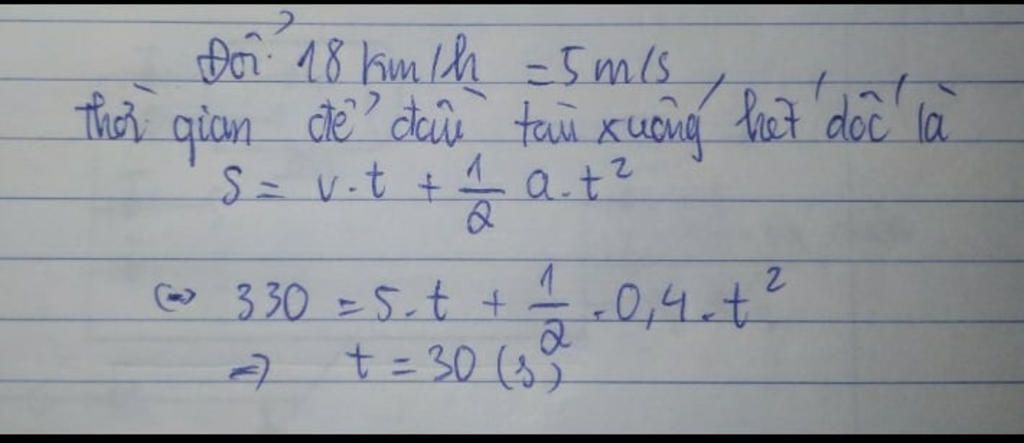 Đổi 18 km/h = 5 m/s
thời gian để đầu tàu xuống hết dốc là
S = v.t + 1/2 a.t²
(=> 330 = 5.t + 1/2 .0,4.t²
=> t = 30 (s)